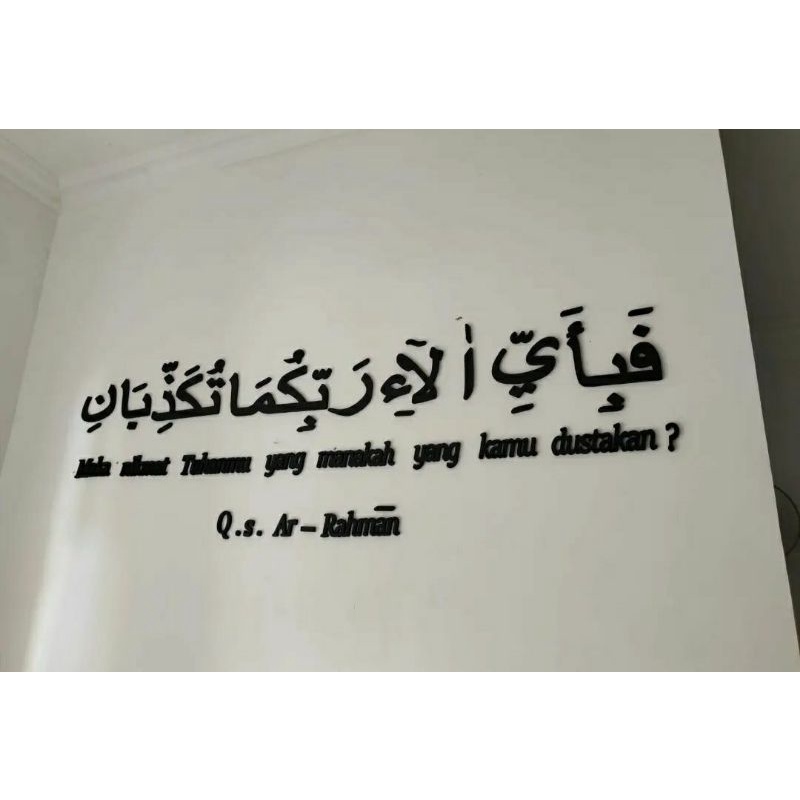 فَبِأَيِّ اٰلَآءِ رَبِّكُمَا تُكَذِّبَانِ
Maka nikmat Tuhanmu yang manakah yang kamu dustakan ?
Q.s. Ar – Rahmān